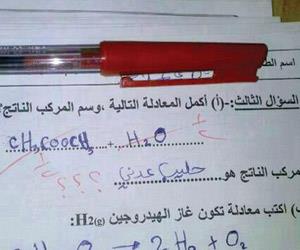 اسم الط
السؤال الثالث:-(أ) أكمل المعادلة التالية ،وسم المركب الناتج؟
CH₃COOCH₃ + H₂O ½
مركب الناتج هو... حليب عدني ؟ ؟ ؟ ½
) اكتب معادلة تكون غاز الهيدروجين H₂(g):
O → 2H₂ + O₂